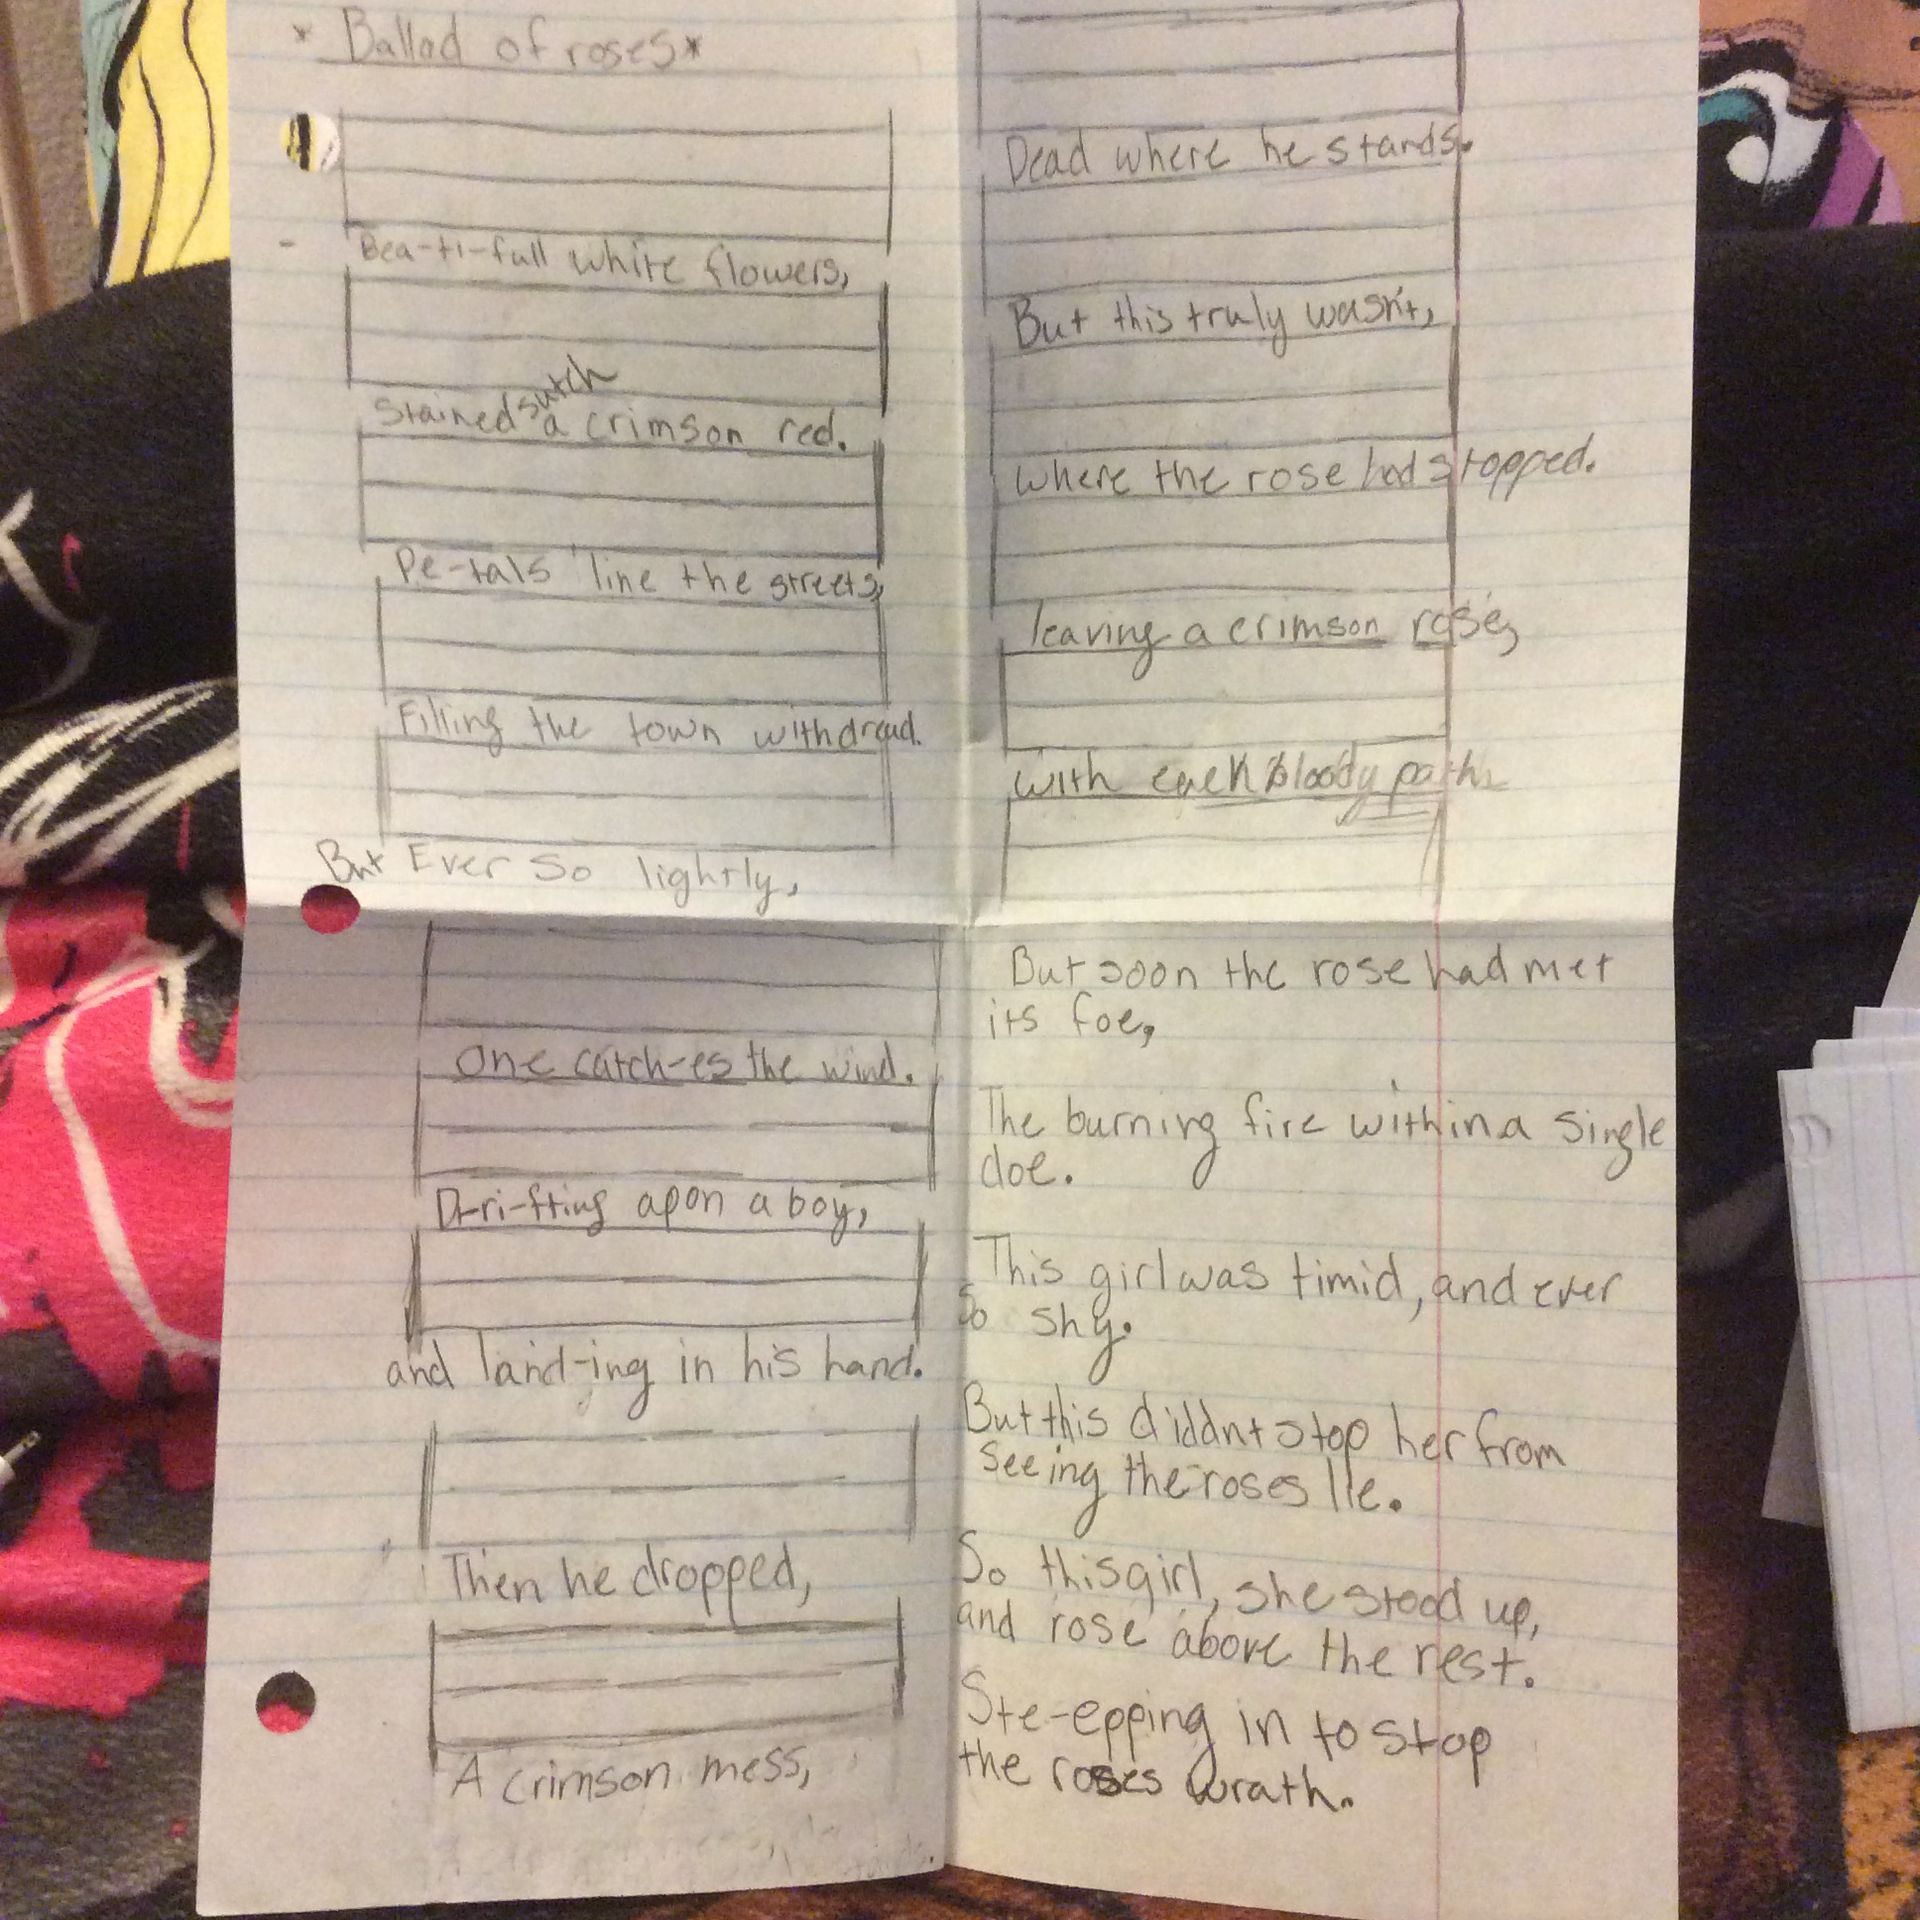 * Ballad of roses *
Bea-ti-full white flowers,
Stained sutch a crimson red.
Pe-tals line the streets,
Filling the town with dread.
But Ever So lightly,
One catch-es the wind.
D-ri-fting apon a boy,
and land-ing in his hand.
Then he dropped,
A crimson mess,
Dead where he stands.
But this truly wasn't,
where the rose had stopped.
leaving a crimson rose,
with each bloody path.
But soon the rose had met
its foe,
The burning fire within a single
doe.
This girl was timid, and ever
so shy.
But this diddnt stop her from
seeing the roses lie.
So this girl, she stood up,
and rose above the rest.
Ste-epping in to stop
the roses wrath.